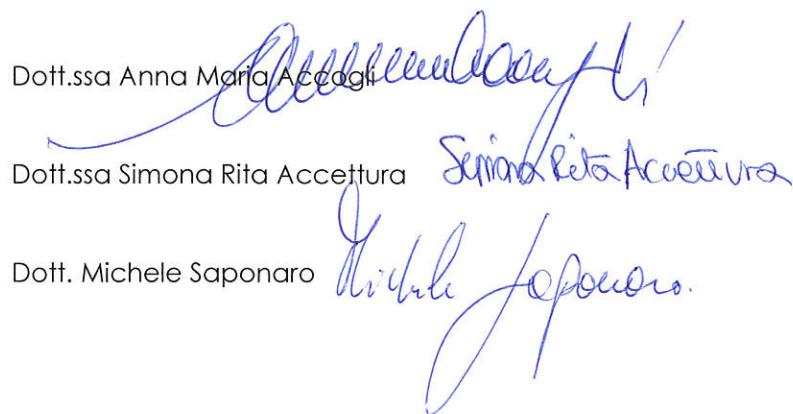 Dott.ssa Anna Maria Accogli
Dott.ssa Simona Rita Accettura Simona Rita Accettura
Dott. Michele Saponaro Michele Saponaro.